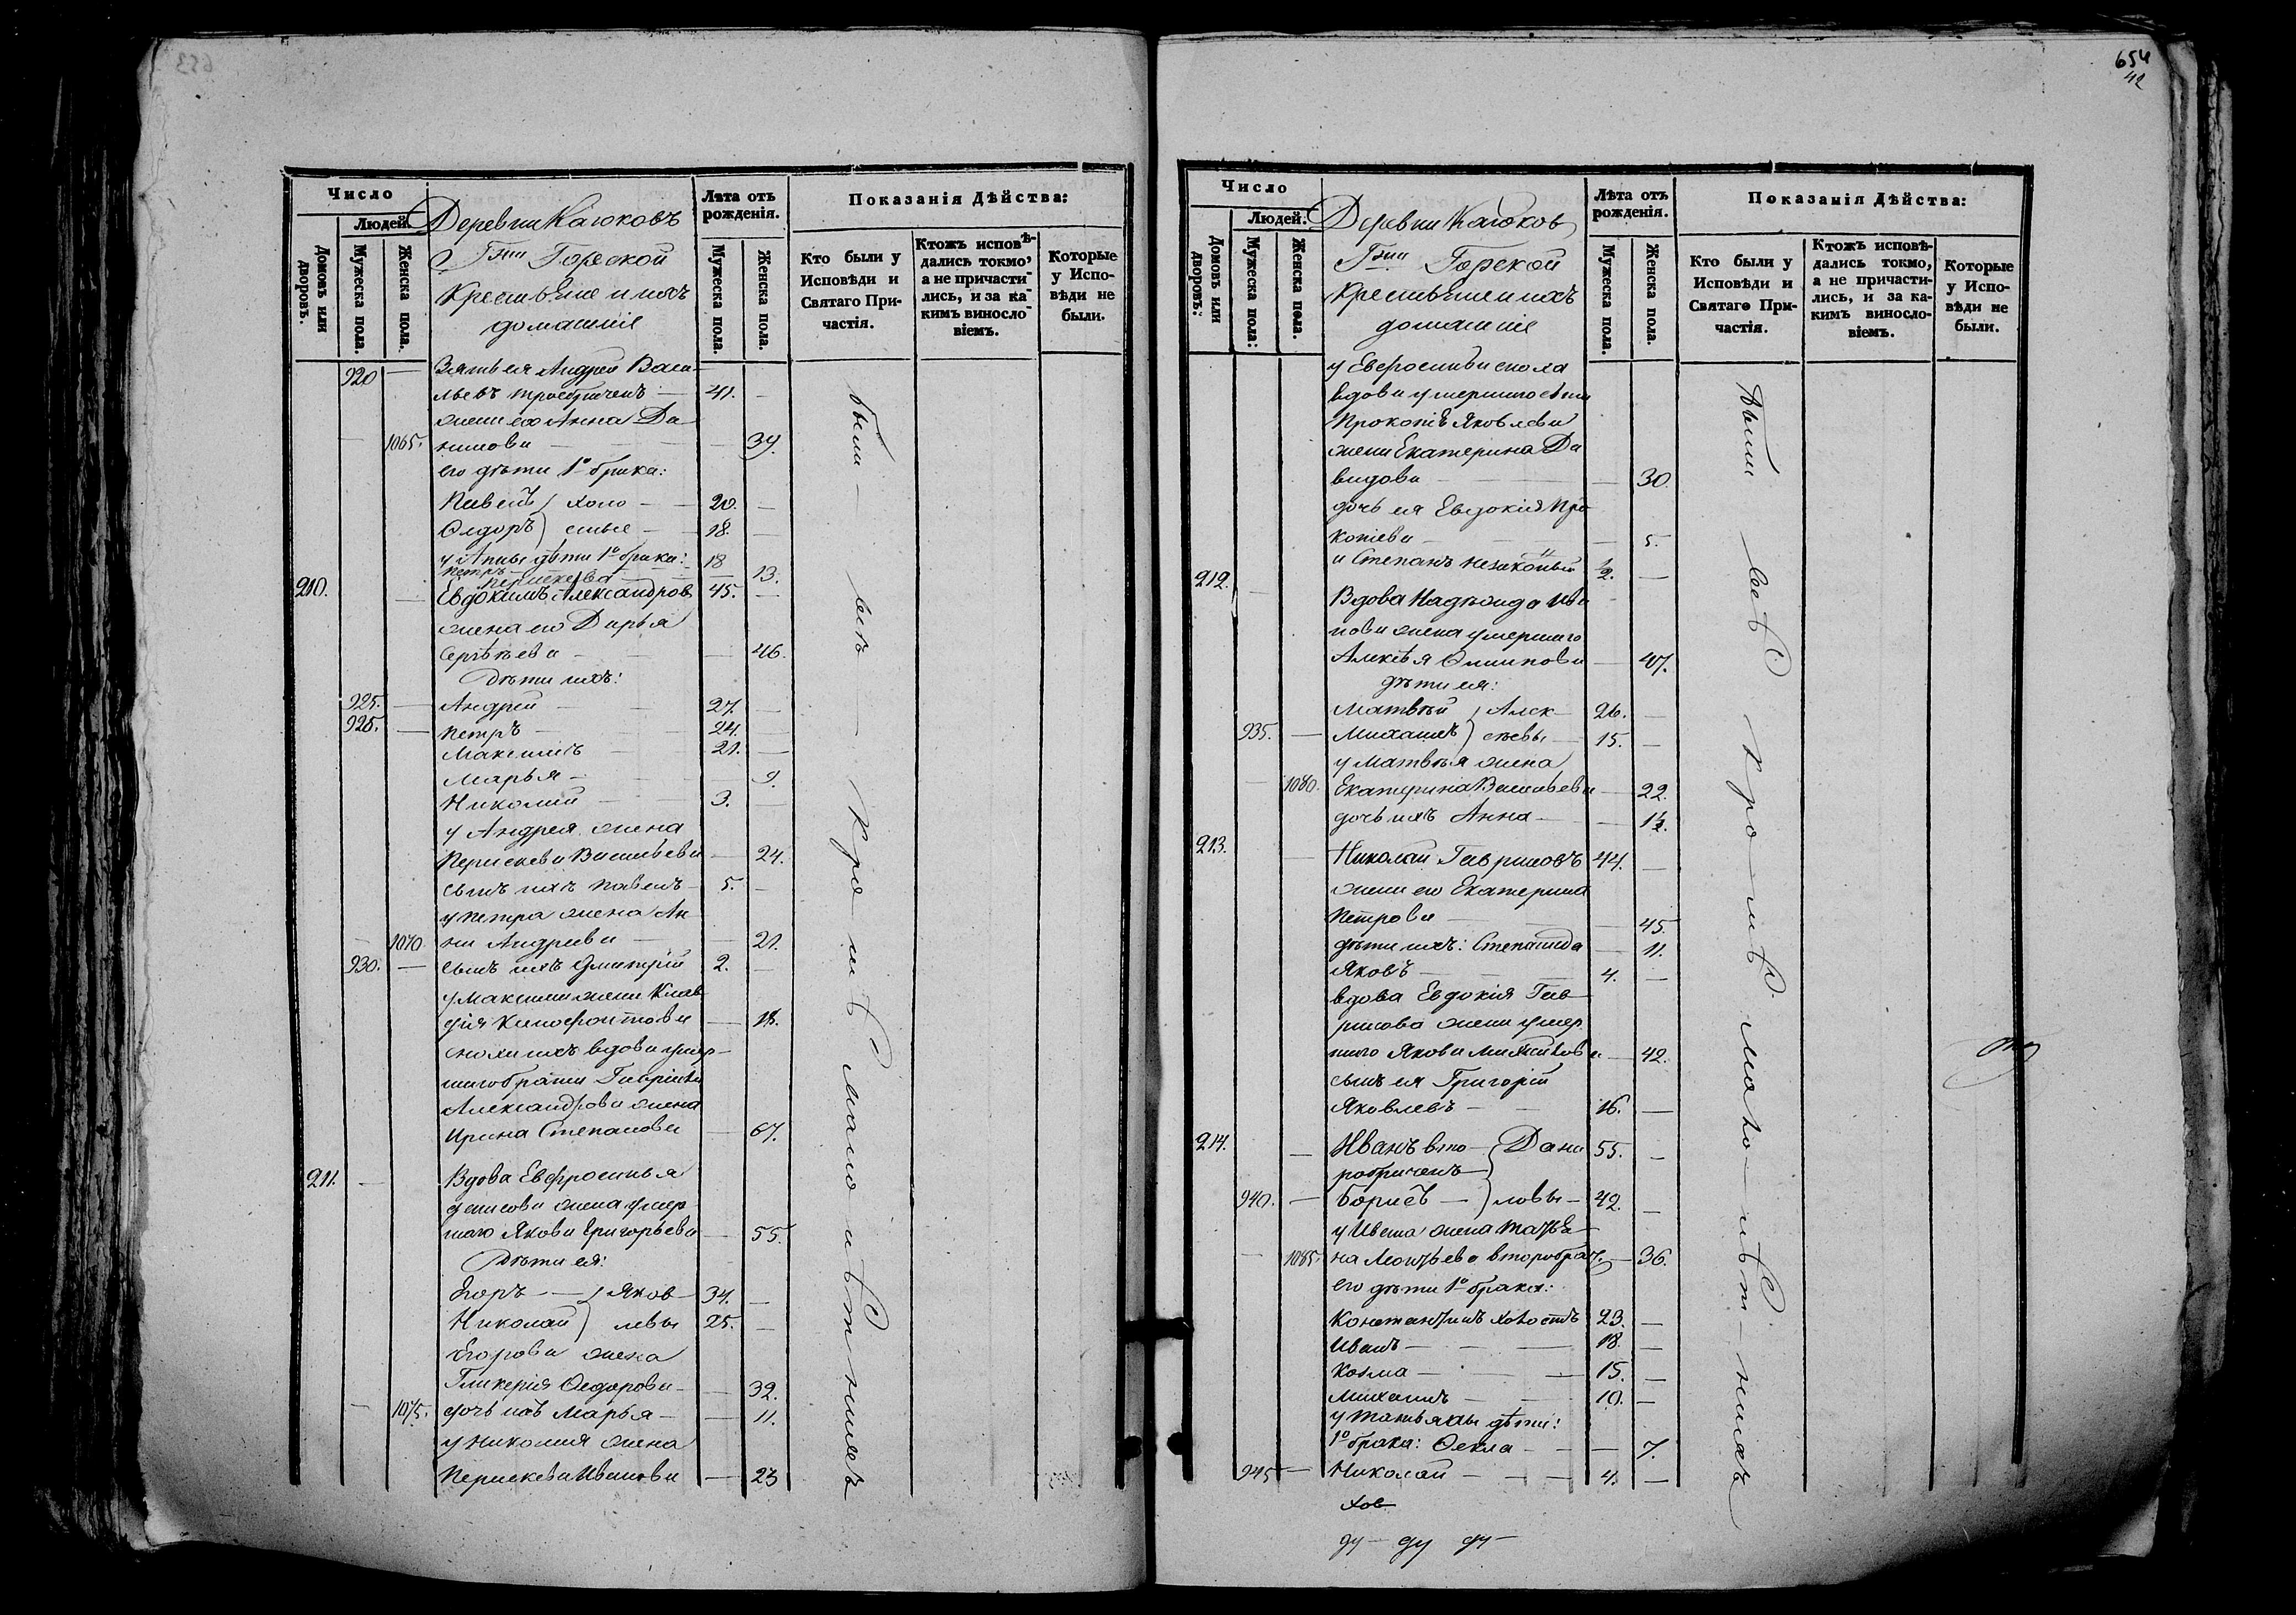 654
42
Число
Людей.
Домовъ или дворовъ.
Мужеска пола.
Женска пола.
Деревни Каюковъ
Гжи Горской
Крестьяне и ихъ
домашніе
Лѣта отъ рожденія.
Мужеска пола.
Женска пола.
Показанія Дѣйства:
Кто были у Исповѣди и Святаго Причастія.
Ктожъ исповѣдались токмо, а не причастились, и за какимъ винословіемъ.
Которые у Исповѣди не были.
920 — Зять ея Андрей Васи
льевъ троебраченъ — 41. —
жена его Анна Да
— 1065. нилова — 39.
его дѣти 1º брака:
Павелъ) холо — 20. —
Ѳедоръ) стые — 18. —
у Анны дѣти 1º брака:
Петръ — 18
Параскева — 13.
210. — Евдокимъ Александров 45. —
жена его Дарья
Сергѣева — 46.
Дѣти ихъ:
925. — Андрей — 27. —
928. — Петръ — 24. —
Максимъ — 21. —
Марья — 9.
Николай — 3. —
у Андрея жена
Параскева Васильева — 24.
сынъ ихъ Павелъ — 5. —
у Петра жена Ан
— 1070. на Андреева — 21.
930. — сынъ ихъ Димитрій 2. —
у Максима жена Клав
дія Ксенофонтова — 18.
сноха ихъ вдова умер
шаго брата Гавріила
Александрова жена
Ирина Степанова — 67.
211. — Вдова Евфросинья
Денисова жена умер
шаго Якова Григорьева — 55.
Дѣти ея:
Егоръ — ) Яков 34. —
Николай ) левы 25. —
Егорова жена
Гликерія Ѳедорова — 32.
— 1075. дочь ихъ Марья — 11.
у Николая жена
Параскева Иванова — 23
были — всѣ — кромѣ малолѣтнихъ
Число
Людей.
Домовъ или дворовъ:
Мужеска пола:
Женска пола.
Деревни Каюков
Гжи Горской
Крестьяне и ихъ
домашніе
Лѣта отъ рожденія.
Мужеска пола.
Женска пола.
Показанія Дѣйства:
Кто были у Исповѣди и Святаго Причастія.
Ктожъ исповѣдались токмо, а не причастились, и за какимъ винословіемъ.
Которые у Исповѣди не были.
у Евфросиньи сноха
вдова умершаго сына
Прокопія Яковлева
жена Екатерина Да
видова — 30.
дочь ея Евдокія Про
копіева — 5.
и Степанъ незаконный ½. —
212. — Вдова Надежда Ива
нова жена умершаго
Алексѣя Филипова — 47.
дѣти ея:
Матвѣй ) Алек 26. —
935. — Михаилъ ) сѣевы 15. —
у Матвѣя жена
— 1080. Екатерина Васильева — 22.
дочь ихъ Анна — 1½.
213. — Николай Гавриловъ 44. —
жена его Екатерина
Петрова — 45.
дѣти ихъ: Степанида — 11.
Яковъ — 4. —
вдова Евдокія Гав
рилова жена умер
шаго Якова Михайлова — 42.
сынъ ея Григорій
Яковлевъ — 16. —
214. — Иванъ вто ) Дани 55. —
робраченъ
940. — Борисъ — ) ловы — 42. —
у Ивана жена Татья
— 1085. на Леонтьева второбрач. — 36.
его дѣти 1º брака:
Константинъ холостъ 23. —
Иванъ — 18. —
Козма — 15. —
Михаилъ — 10. —
у Татьяны дѣти:
1º брака: Ѳекла — 7.
945 — Николай — 4. —
хов
ду — ду ду —
были всѣ кромѣ малолѣтнихъ